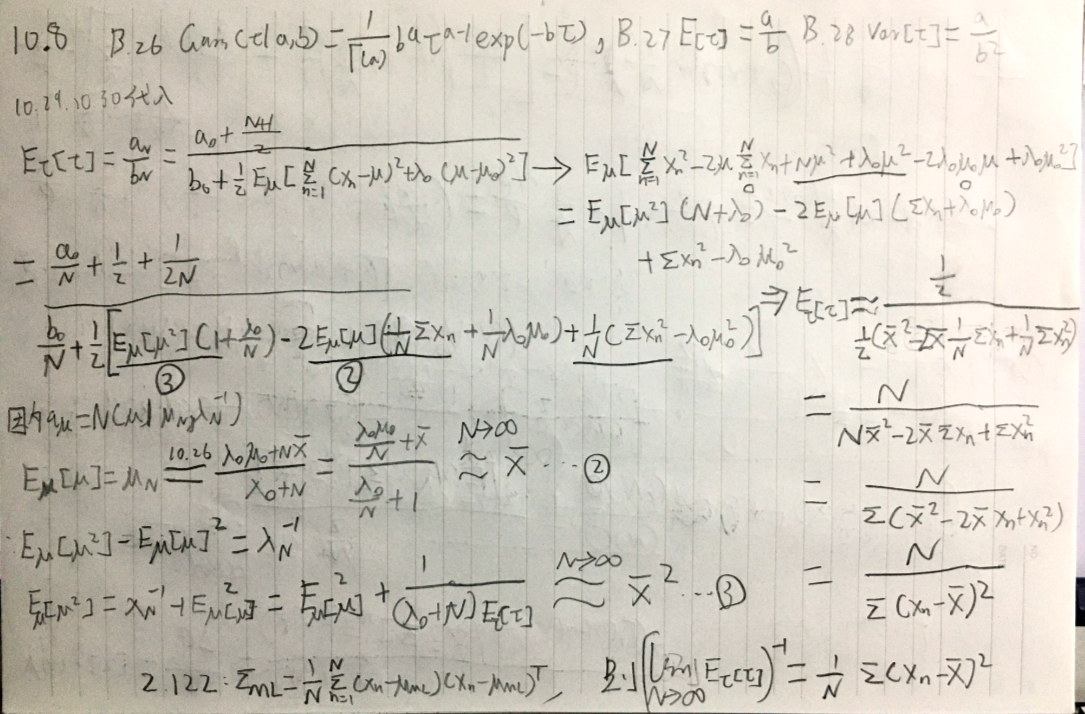 10.8 B.26 Gam(τ|a,b)=1/Γ(a) b^a τ^{a-1} exp(-bτ), B.27 E[τ]=a/b B.28 var[τ]=a/b²
10.29.10.30代入
E_τ[τ]=a_N/b_N=(a₀+(N+1)/2)/(b₀+½E_μ[Σ_{n=1}^N(x_n-μ)²+λ₀(μ-μ₀)²]) → E_μ[Σ_{n=1}^N x_n²-2μΣ_{n=1}^N x_n+Nμ²+λ₀μ²-2λ₀μ₀μ+λ₀μ₀²]
=E_μ[μ²](N+λ₀)-2E_μ[μ](Σx_n+λ₀μ₀)
+Σx_n²-λ₀μ₀²
=(a₀/N+1/2+1/2N)/(b₀/N+½[E_μ[μ²](1+λ₀/N)-2E_μ[μ](1/N Σx_n+1/N λ₀μ₀)+1/N(Σx_n²-λ₀μ₀²)])
③ ②
⇒E[τ]≈(1/2)/(½(x̄²-2x̄ 1/N Σx_n+1/N Σx_n²))
=N/(Nx̄²-2x̄Σx_n+Σx_n²)
=N/(Σ(x̄²-2x̄x_n+x_n²))
=N/(Σ(x_n-x̄)²)
因为q_μ=N(μ|μ_N,λ_N^{-1})
E_μ[μ]=μ_N =10.26= (λ₀μ₀+Nx̄)/(λ₀+N)=(λ₀μ₀/N+x̄)/(λ₀/N+1) N→∞ ≈ x̄ …②
E_μ[μ²]-E_μ[μ]²=λ_N^{-1}
E_μ[μ²]=λ_N^{-1}+E_μ²[μ]=E_μ²[μ]+1/((λ₀+N)E_τ[τ]) N→∞ ≈ x̄² …③
2.122:Σ_ML=1/N Σ_{n=1}^N(x_n-μ_ML)(x_n-μ_ML)^T, (lim_{N→∞}E_τ[τ])^{-1}=1/N Σ(x_n-x̄)²